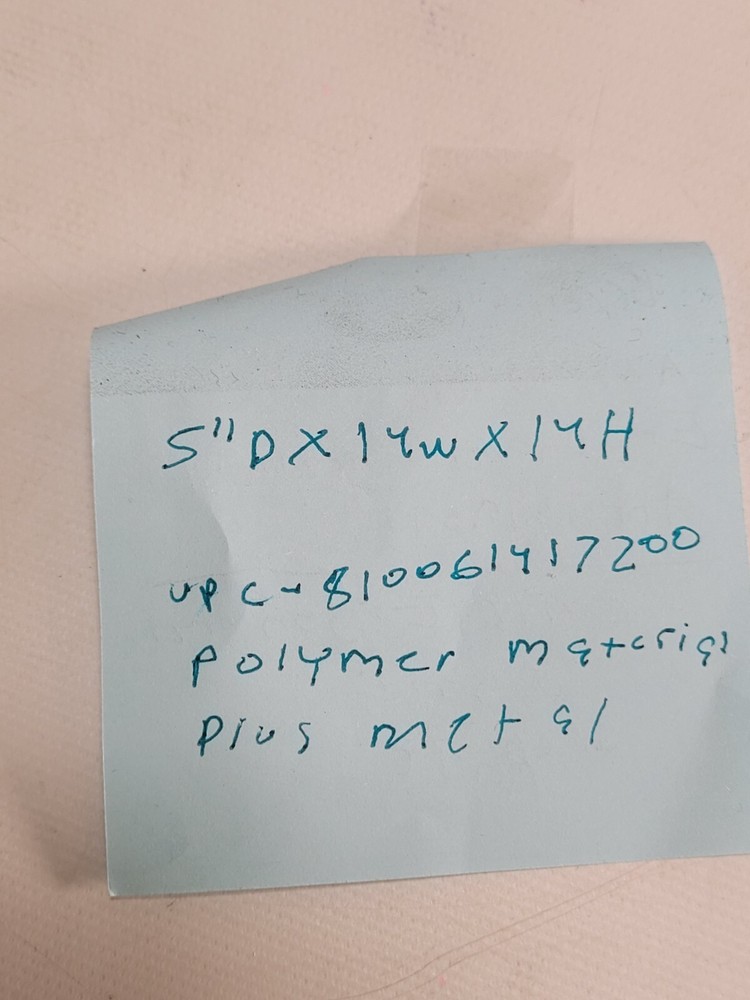 5"D X 14W X 14H
UPC-810061417200
polymer material
plus metal